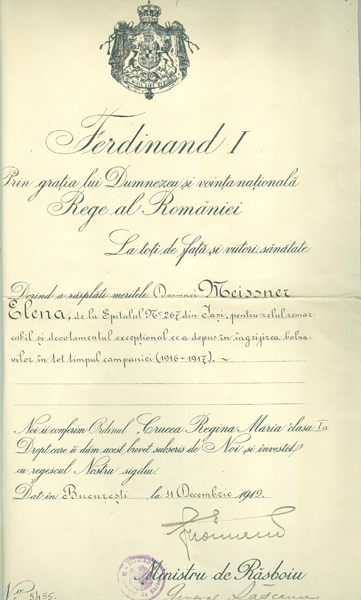 Ferdinand I
Prin grația lui Dumnezeu și voința națională
Rege al României
La toți de față și viitori, sănătate
Dorind a răsplăti meritele Doamnei Meissner
Elena, de la Spitalul No 267 din Iași, pentru zelul remar
cabil și devotamentul excepțional ce a depus în îngrijirea bolna
vilor în tot timpul campaniei (1916-1917). ~
Noi îi conferim Ordinul Crucea Regina Maria clasa Ia
Drept care îi dăm acest brevet subscris de Noi și investit
cu regescul Nostru sigiliu.
Dat în București la 31 Decembrie 1919.
Ferdinand
Ministru de Răsboiu
No. 5455.
General Rășcanu